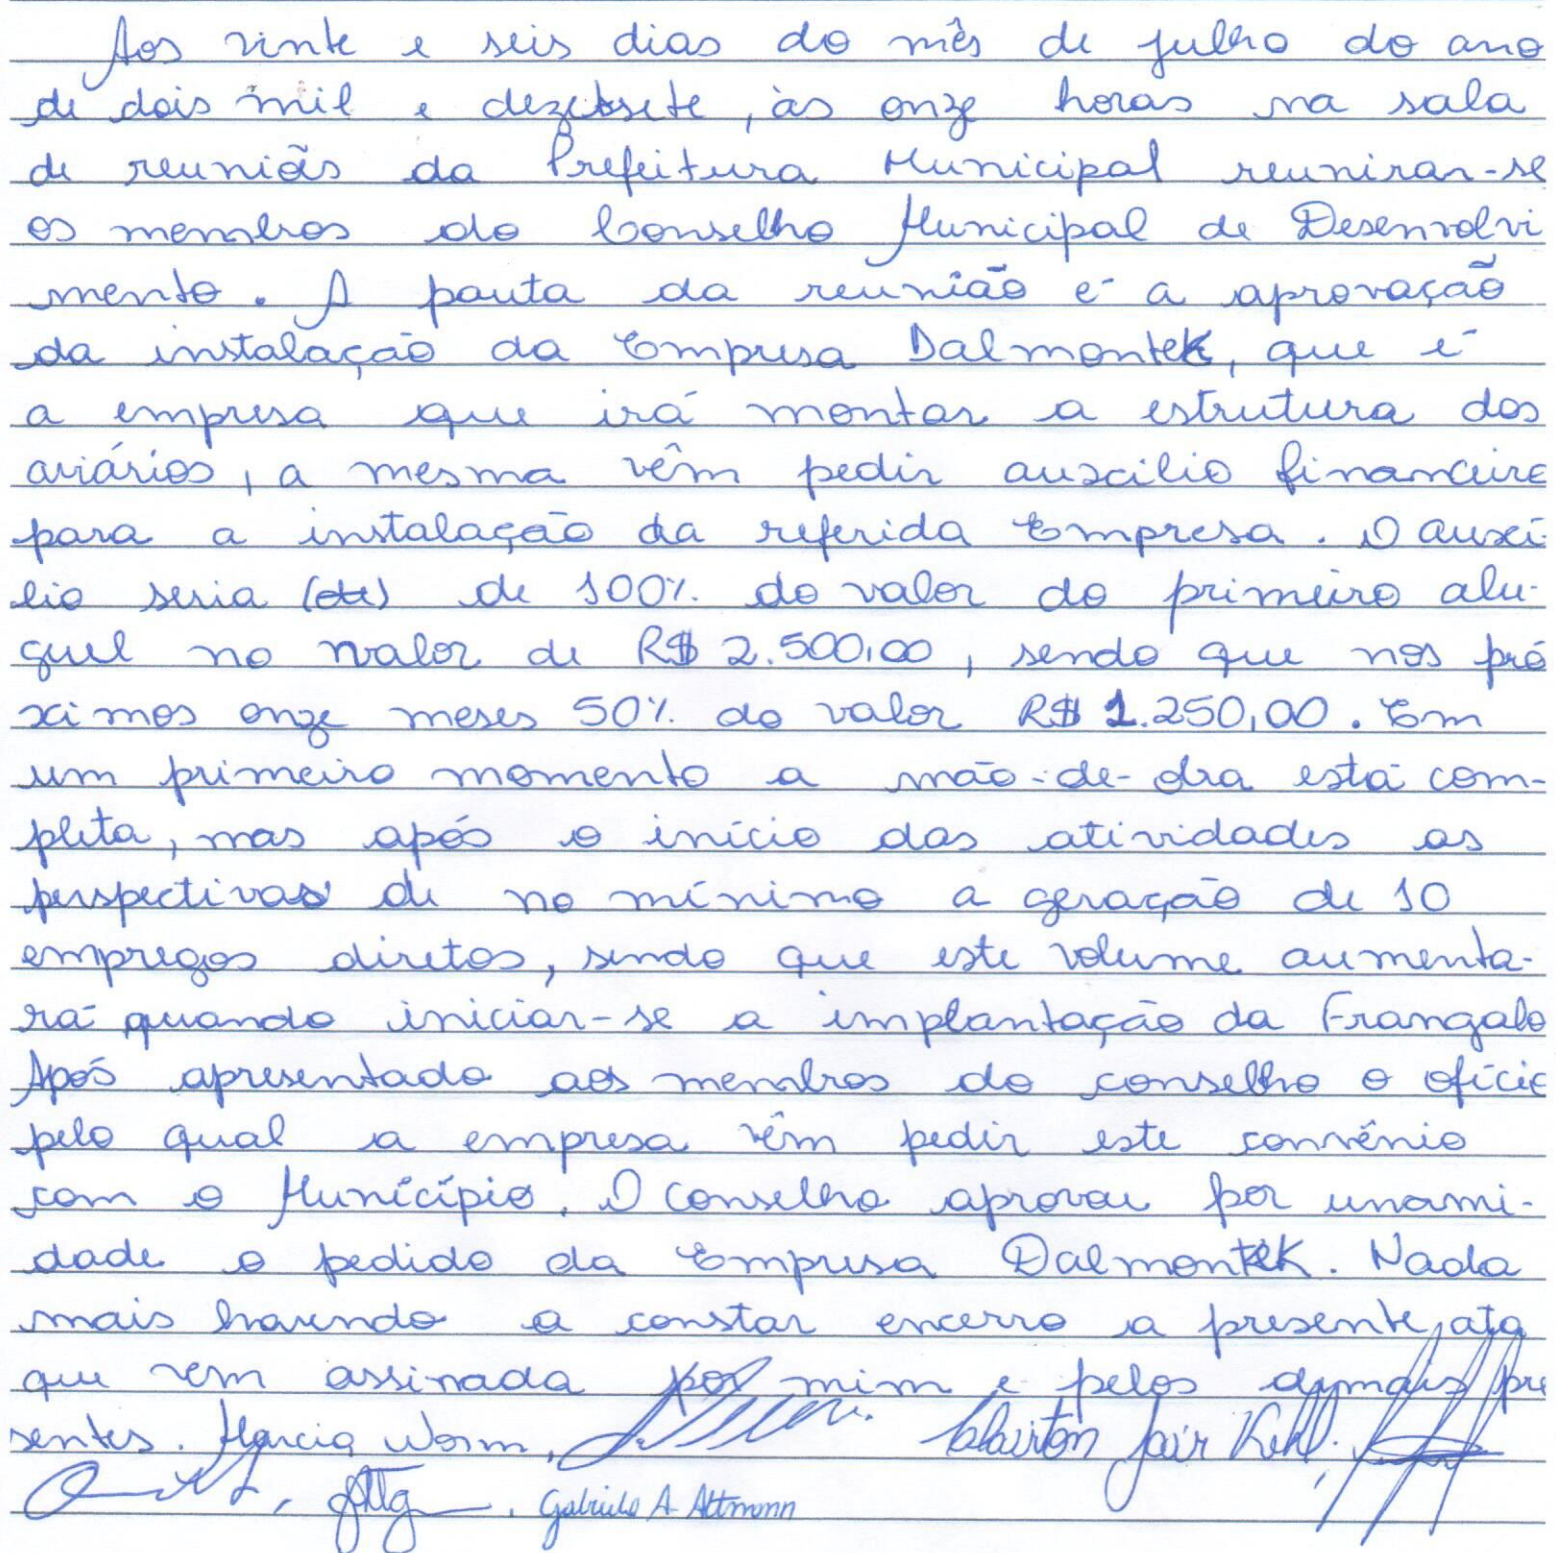 Aos vinte e seis dias do mês de julho do ano
de dois mil e dezetsete, às onze horas na sala
de reuniões da Prefeitura Municipal reuniram-se
os membros do Conselho Municipal de Desenvolvi
mento. A pauta da reunião é a aprovação
da instalação da Empresa Dalmontek, que é
a empresa que irá montar a estrutura dos
aviários, a mesma vêm pedir auxcilio financeiro
para a instalação da referida Empresa. O auxi-
lio seria (de) de 100% do valor do primeiro alu-
guel no valor de R$ 2.500,00, sendo que nos pró
ximos onze meses 50% do valor R$ 1.250,00. Em
um primeiro momento a mão-de-obra está com-
pleta, mas após o início das atividades as
perspectivas de no mínimo a geração de 10
empregos diretos, sendo que este volume aumenta-
rá quando iniciar-se a implantação da Frangalo
Após apresentado aos membros do conselho o ofício
pelo qual a empresa vêm pedir este convênio
com o Munícípio. O Conselho aprovou por unami-
dade o pedido da Empresa Dalmontek. Nada
mais havendo a constar encerro a presente ata
que vem assinada por mim e pelos demais pre
sentes. Marcia Worm, Clairton Jair Kehl.
Gabriele A. Altmann